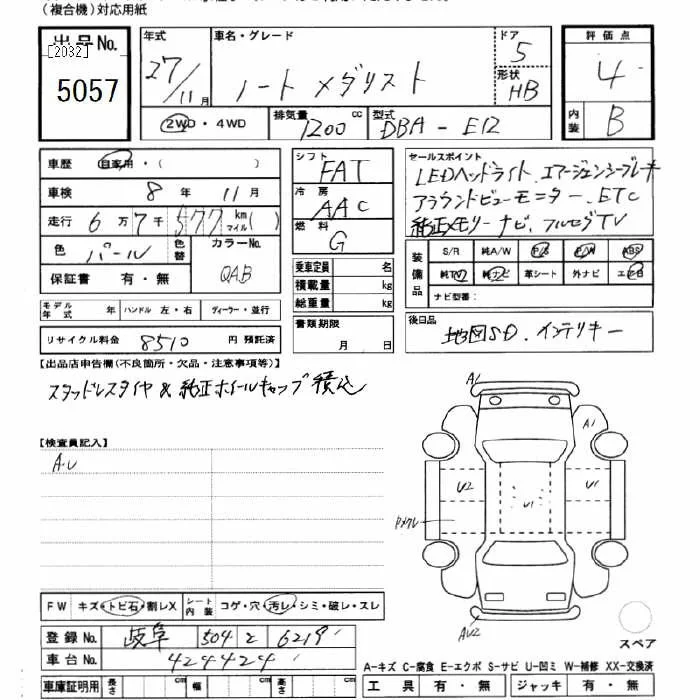 (複合機)対応用紙
出品No.
[2032]
5057
年式
27/11月
車名・グレード
ノート メダリスト
ドア
5
形状
HB
評価点
4
内装
B
2WD・4WD
排気量
1200 cc
型式
DBA-E12
車歴 自家用・( )
車検 8年 11月
走行 6万7千577 km マイル( )
色 パール
色替
カラーNo.
QAB
保証書 有・無
シフト
FAT
冷房
AAC
燃料
G
乗車定員 名
積載量 kg
総重量 kg
セールスポイント
LEDヘッドライト エマージェンシーブレーキ
アラウンドビューモニター、ETC
純正メモリーナビ、フルセグTV
装備品
S/R 純A/W P/S P/W ABS
純TV 純ナビ 革シート 外ナビ エアB
ナビ型番:
モデル年式 年 ハンドル 左・右 ディーラー・並行
リサイクル料金 8510 円 預託済
書類期限
月 日
後日品
地図SD、インテリキー
【出品店申告欄(不良箇所・欠品・注意事項等)】
スタッドレスタイヤ & 純正ホイールキャップ積込
【検査員記入】
A.U
A1
A1
U2
U1
U1
AU2
スペア
FW キズ・トビ石・割レX
シート内装 コゲ・穴・汚レ・シミ・破レ・スレ
登録No. 岐阜 504 と 6219
車台No. 424424
車庫証明用 長さ cm 幅 cm 高さ cm
A-キズ C-腐食 E-エクボ S-サビ U-凹ミ W-補修 XX-交換済
工具 有・無 ジャッキ 有・無